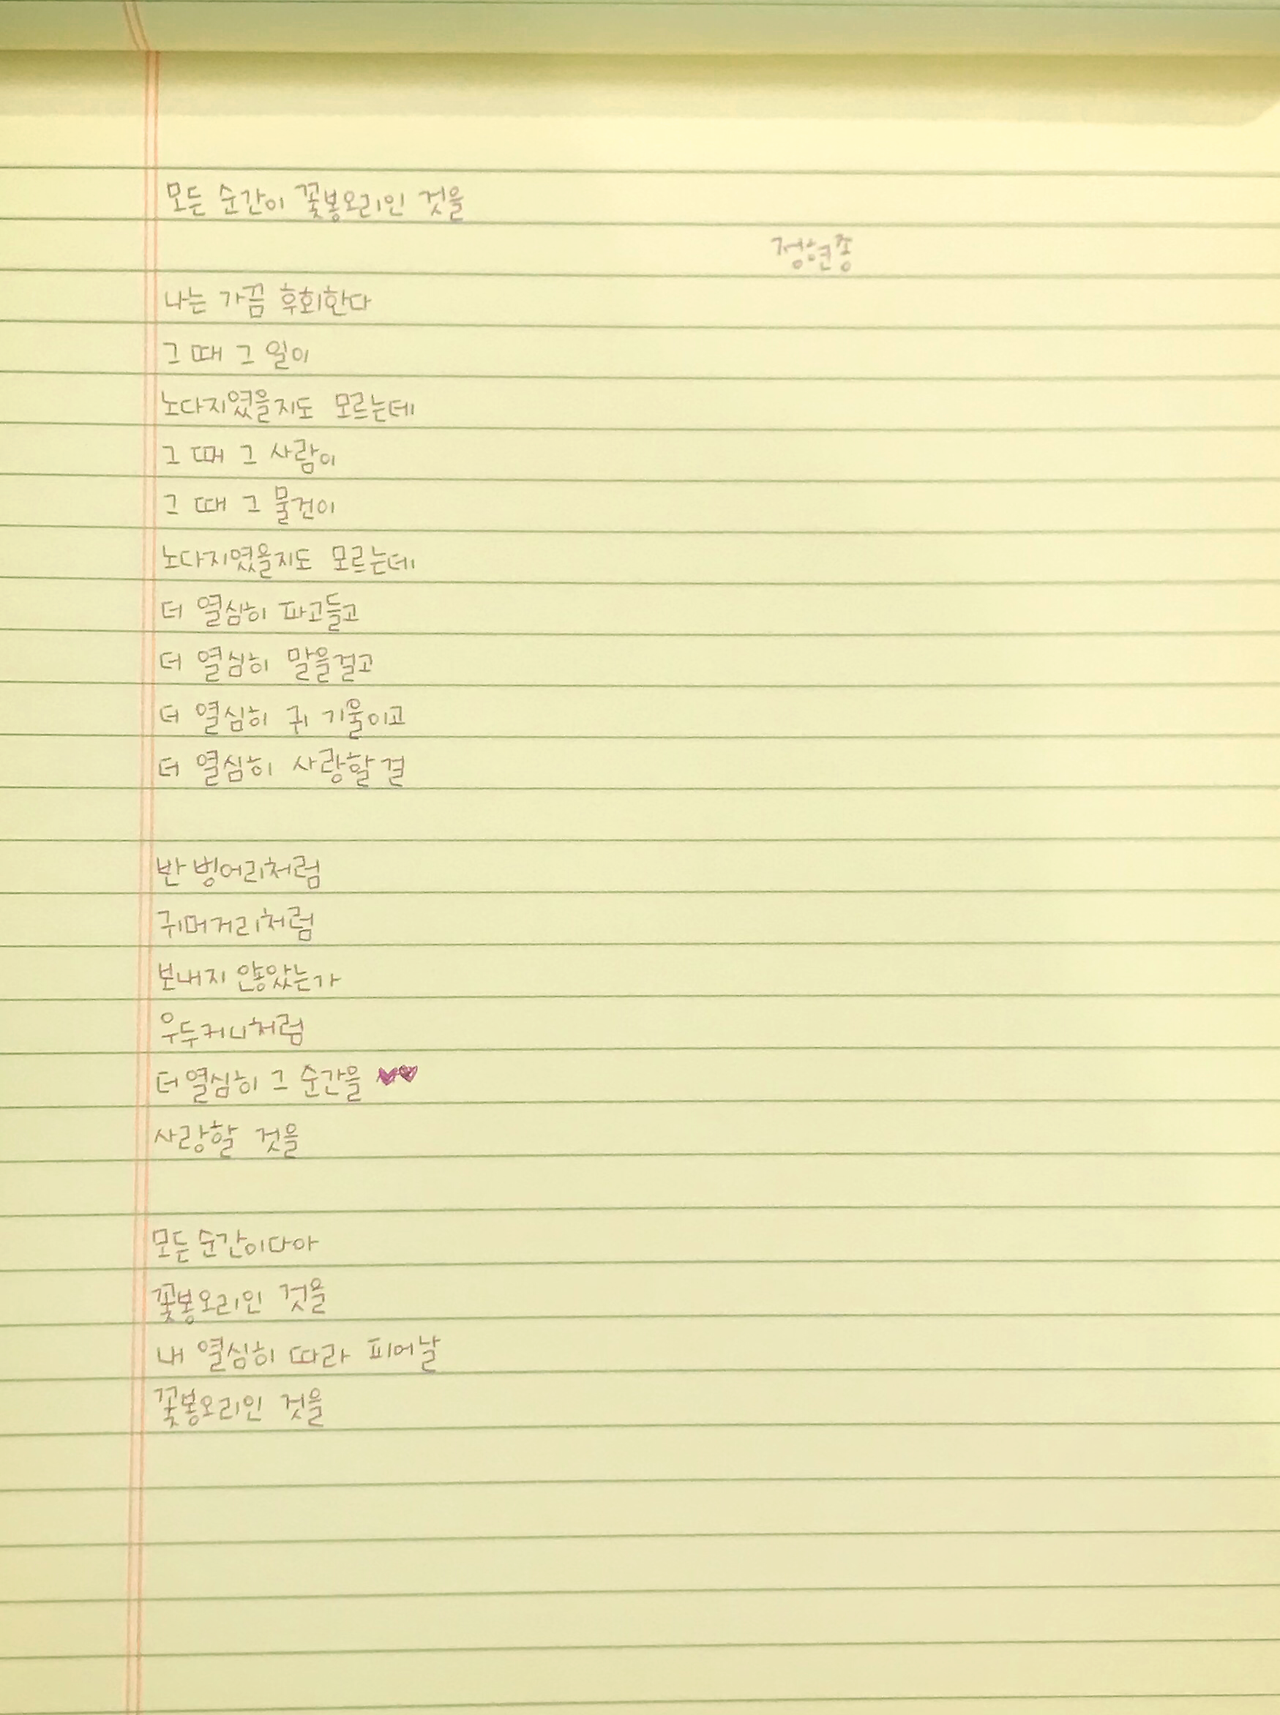 모든 순간이 꽃봉오리인 것을
정현종
나는 가끔 후회한다
그 때 그 일이
노다지였을지도 모르는데
그 때 그 사람이
그 때 그 물건이
노다지였을지도 모르는데
더 열심히 파고들고
더 열심히 말을걸고
더 열심히 귀 기울이고
더 열심히 사랑할 걸
반 벙어리처럼
귀머거리처럼
보내지 않았는가
우두커니처럼
더 열심히 그 순간을
사랑할 것을
모든 순간이다아
꽃봉오리인 것을
내 열심히 따라 피어날
꽃봉오리인 것을